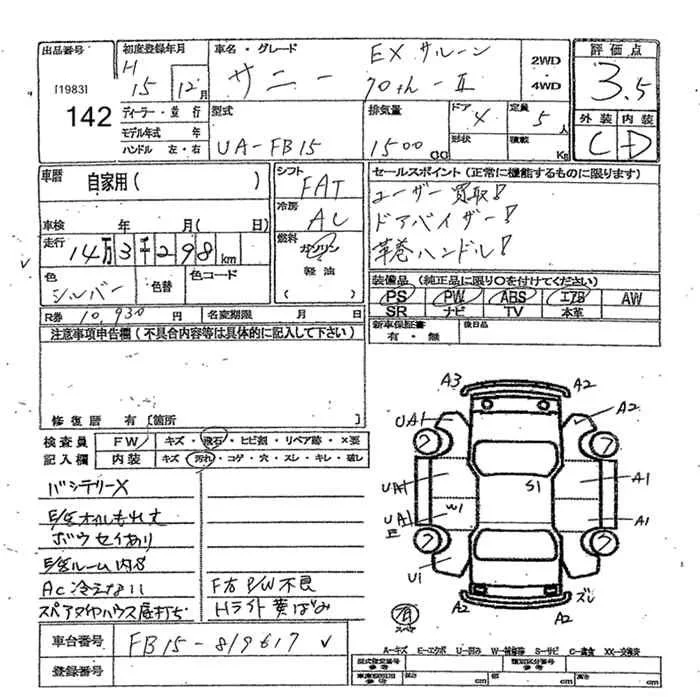 出品番号
[1983]
142
初度登録年月
H 15年 12月
ディーラー・並行
モデル年式 年
ハンドル 左・右
車名・グレード
サニー
EX サルーン
70th-Ⅱ
2WD
4WD
型式
UA-FB15
排気量
1500 CC
ドア 4
形状
定員 5人
積載 Kg
評価点
3.5
外装 内装
C D
車歴 自家用( )
車検 年 月( 日)
走行 14万3千298km
色 シルバー
色替
色コード
R券 10,930円 名変期限 月 日
シフト FAT
冷房 AC
燃料 ガソリン
軽油
( )
セールスポイント(正常に機能するものに限ります)
ユーザー買取!
ドアバイザー!
革巻ハンドル!
装備品(純正品に限り○を付けてください)
PS PW ABS エアB AW
SR ナビ TV 本革
新車保証書 後日品
有・無
注意事項申告欄(不具合内容等は具体的に記入して下さい)
修復歴 有[箇所 ]
検査員 FW キズ・飛石・ヒビ割・リペア跡・×要
記入欄 内装 キズ・汚れ・コゲ・穴・スレ・キレ・破し
バッテリーX
E/gオイルもれ大
ボウセイあり
E/gルーム内S
AC 冷えない
F右 P/W 不良
スペアタイヤハウス底打ち
Hライト黄ばみ
A3 A2
UA1 A2
7 7
UA1 S1 A1
UA1 W1 A1
E
7 7
U1
A2 A2 ズレ
車台番号 FB15-819617
登録番号
A-キズ E-エクボ U-凹み W-補修跡 S-サビ C-腐食 XX-交換済
型式指定番号 類別区分番号
参考 参考
長さ cm 幅 cm 高さ cm